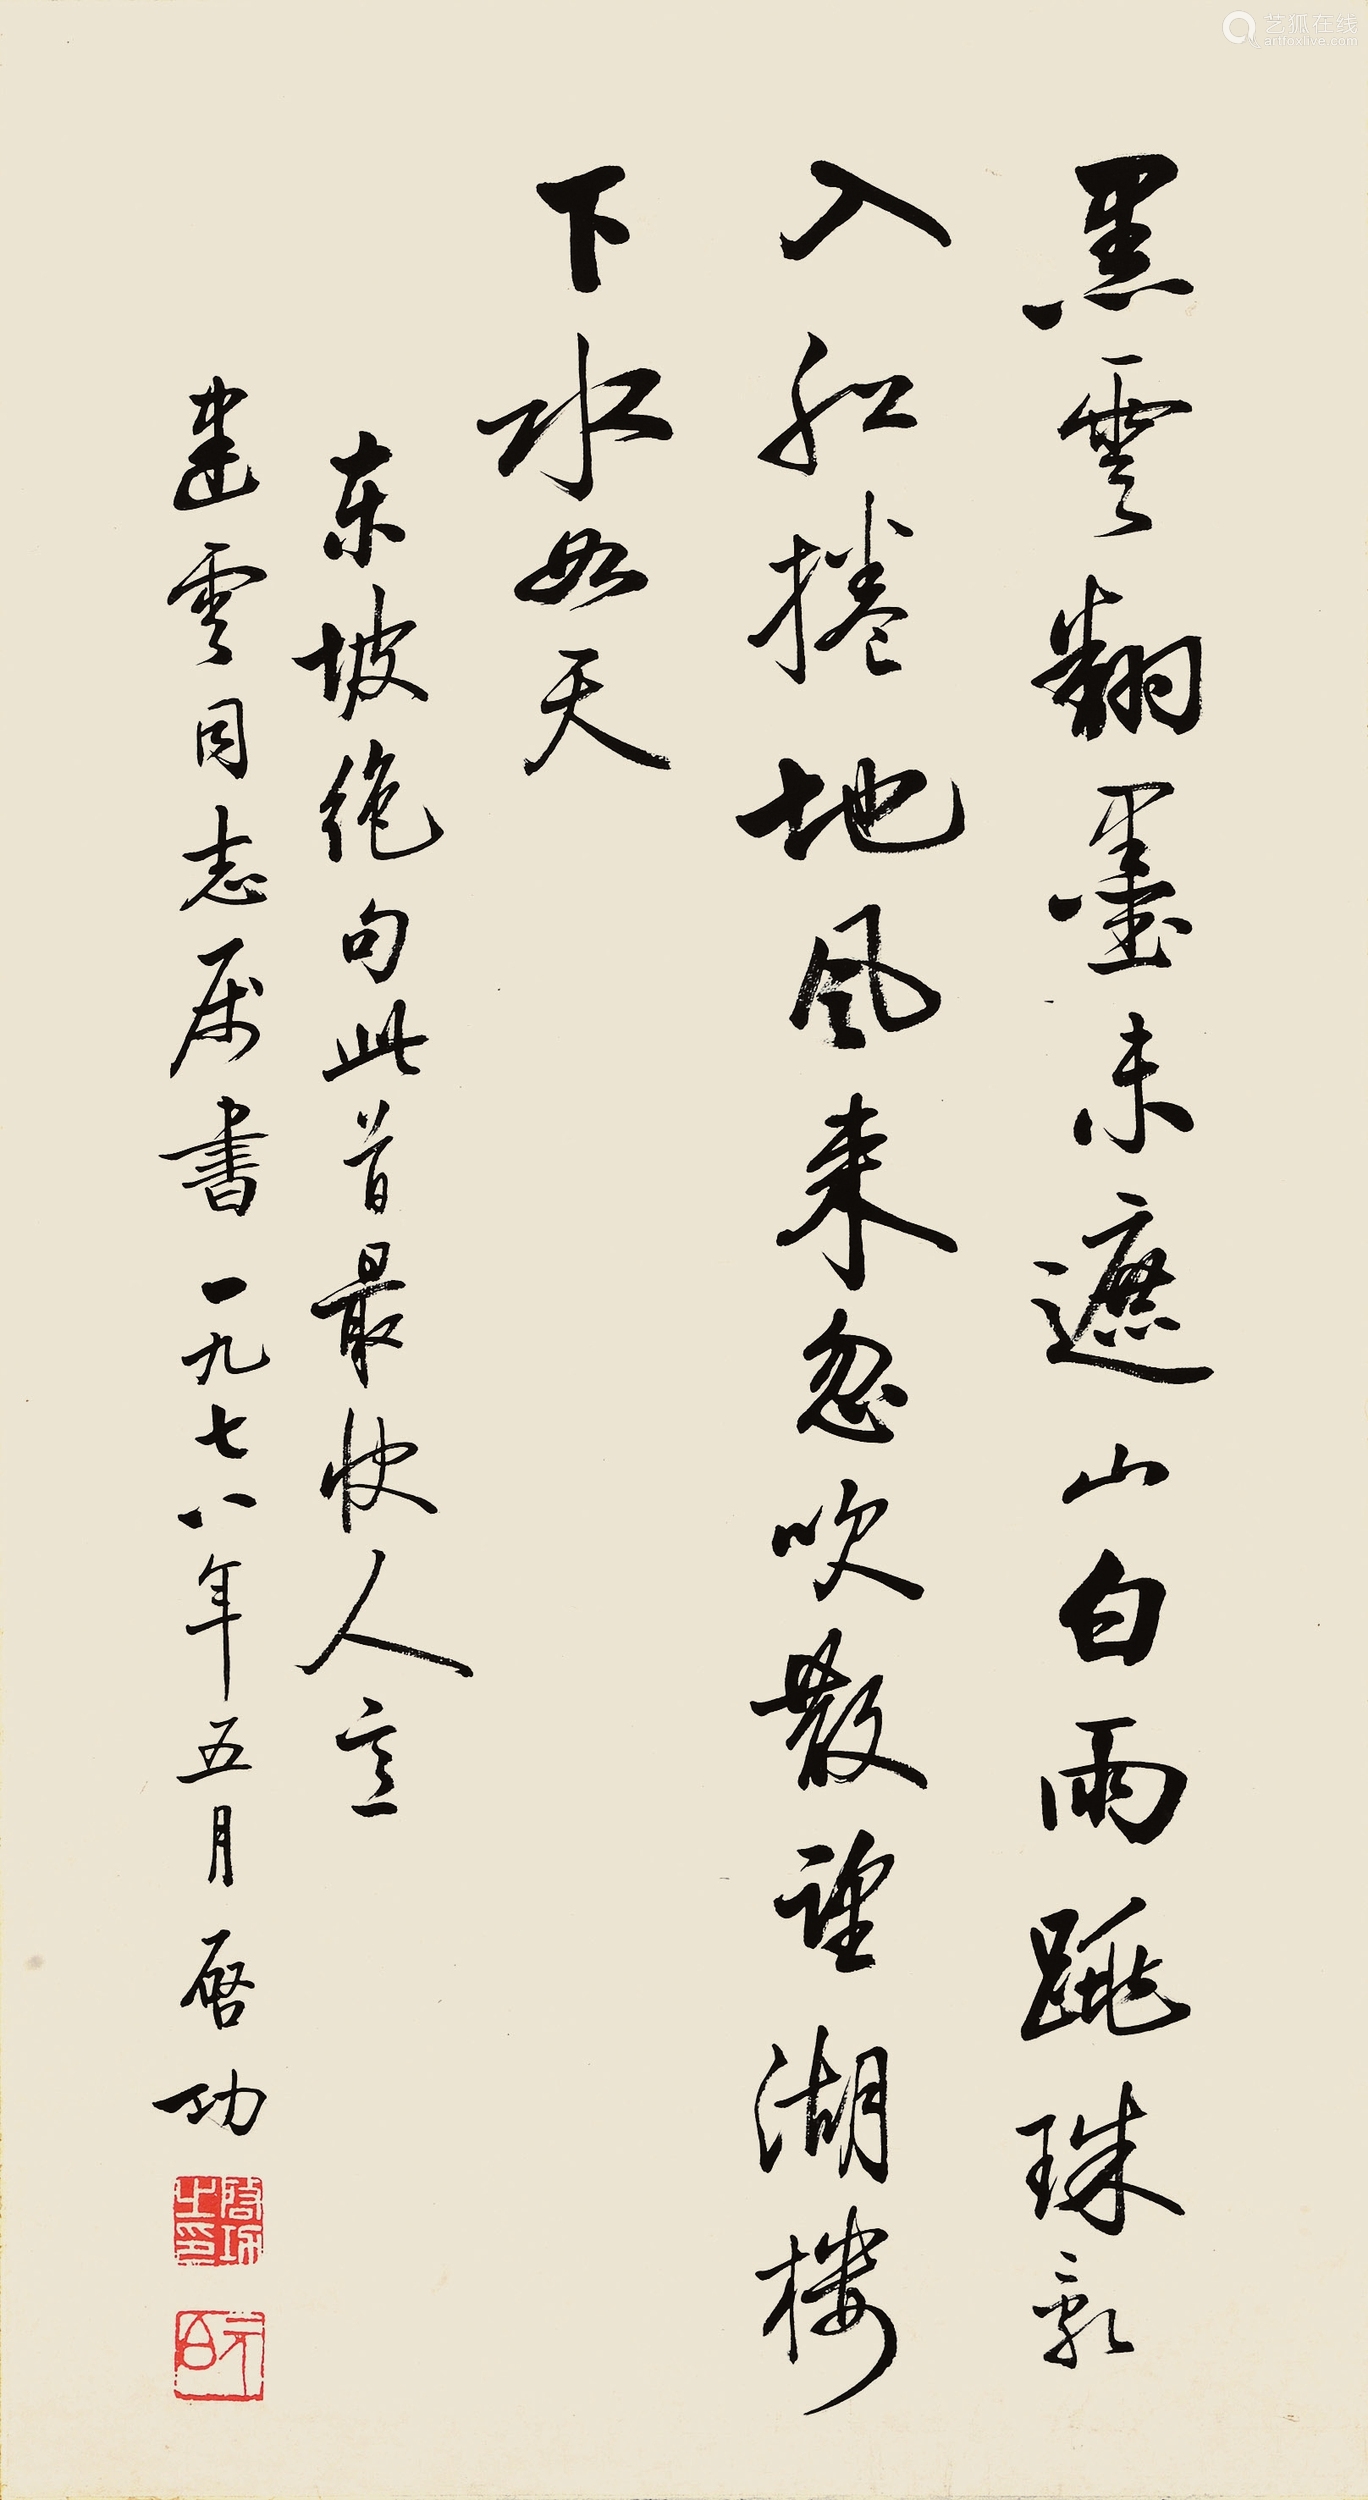 黑雲翻墨未遮山白雨跳珠乱
入船捲地風来忽吹散望湖楼
下水如天
东坡绝句此首最快人意
建雲同志属書一九七八年五月启功
啟功之印
元白
艺狐在线
artfoxlive.com